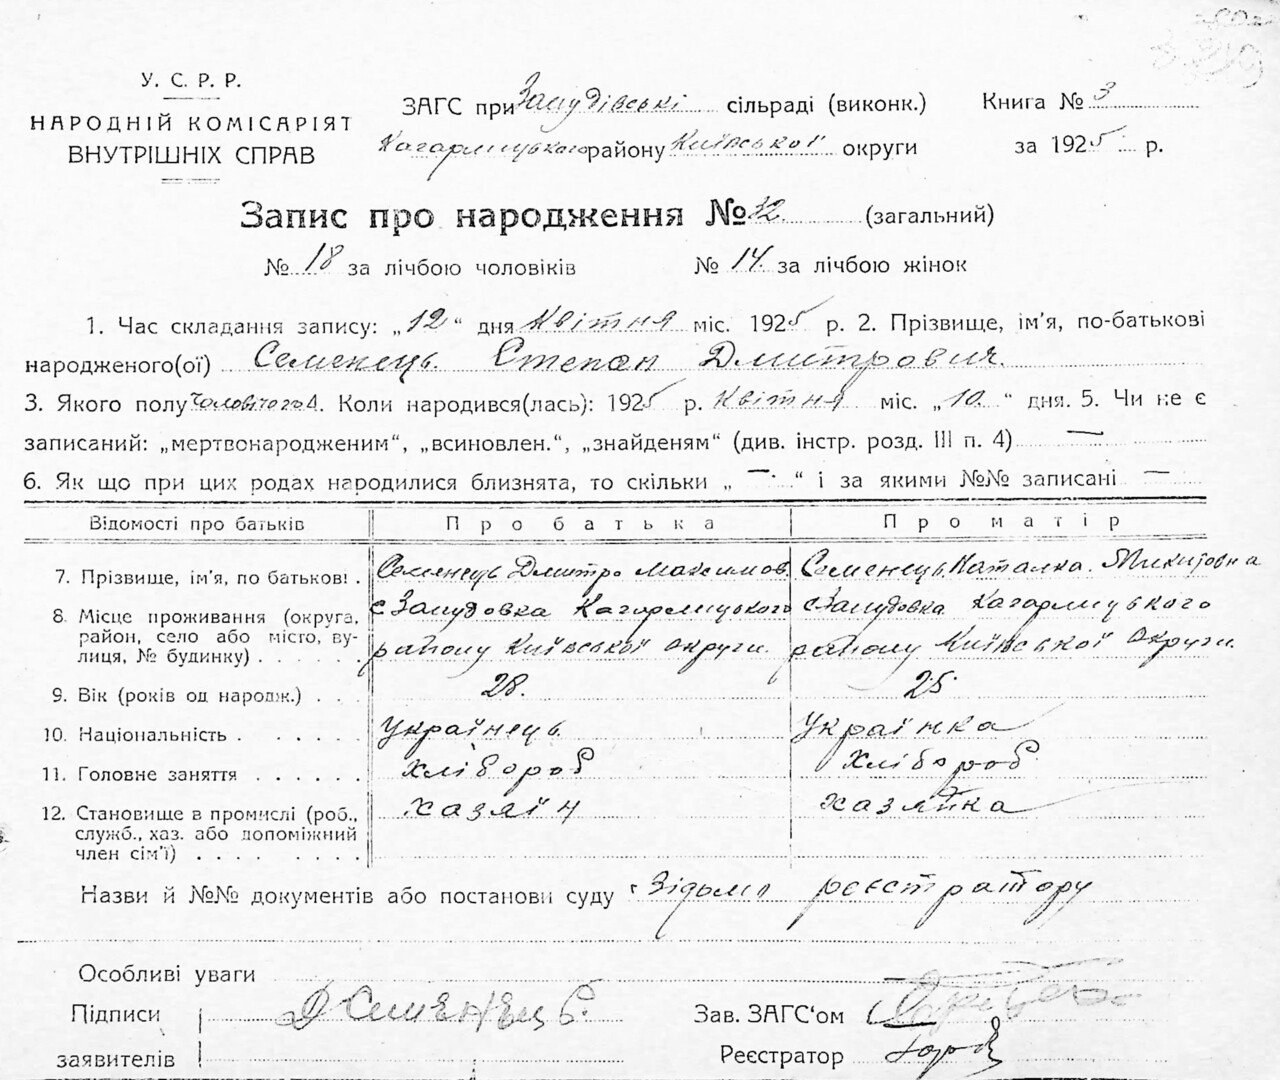 У. С. Р. Р.
НАРОДНІЙ КОМІСАРІЯТ
ВНУТРІШНІХ СПРАВ
ЗАГС при Запудівські сільраді (виконк.)
Кагарлицького району Київської округи
Книга № 3
за 1925 р.
Запис про народження № 32 (загальний)
№ 18 за лічбою чоловіків № 14. за лічбою жінок
1. Час складання запису: „12“ дня Квітня міс. 1925 р. 2. Прізвище, ім'я, по-батькові
народженого(ої) Семенець Степан Дмитрович.
3. Якого полу Чоловічого 4. Коли народився(лась): 1925 р. Квітня міс. „10.“ дня. 5. Чи не є
записаний: „мертвонародженим“, „всиновлен.“, „знайденям“ (див. інстр. розд. III п. 4) —
6. Як що при цих родах народилися близнята, то скільки „ — “ і за якими №№ записані —
Відомості про батьків Про батька Про матір
7. Прізвище, ім'я, по батькові . Семенець Дмитро Максимов. Семенець Наталка Микитовна
8. Місце проживання (округа, район, село або місто, вулиця, № будинку) . . . . . .
с. Запудовка Кагарлицького с. Запудовка Кагарлицького
району Київської округи. району Київської округи.
9. Вік (років од народж.) . . . 28. 25.
10. Національність . . . . . . Українець Українка
11. Головне заняття . . . . . . Хлібороб Хлібороб
12. Становище в промислі (роб., служб., хаз. або допоміжний член сім'ї) . . . . . . . . хазяїн хазяйка
Назви й №№ документів або постанови суду Відома реєстратору
Особливі уваги
Підписи Д Семенець.
заявителів
Зав. ЗАГС‘ом
Реєстратор